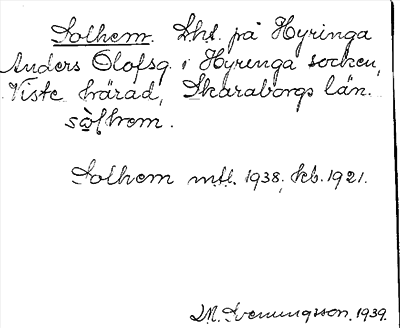 Solhem. Lht. på Hyringa
Anders Olofsg. i Hyrenga socken,
Viste härad, Skaraborgs län.
sòlhem.
Solhem mtl. 1938, kb. 1921.
M. Svenungsson. 1939.